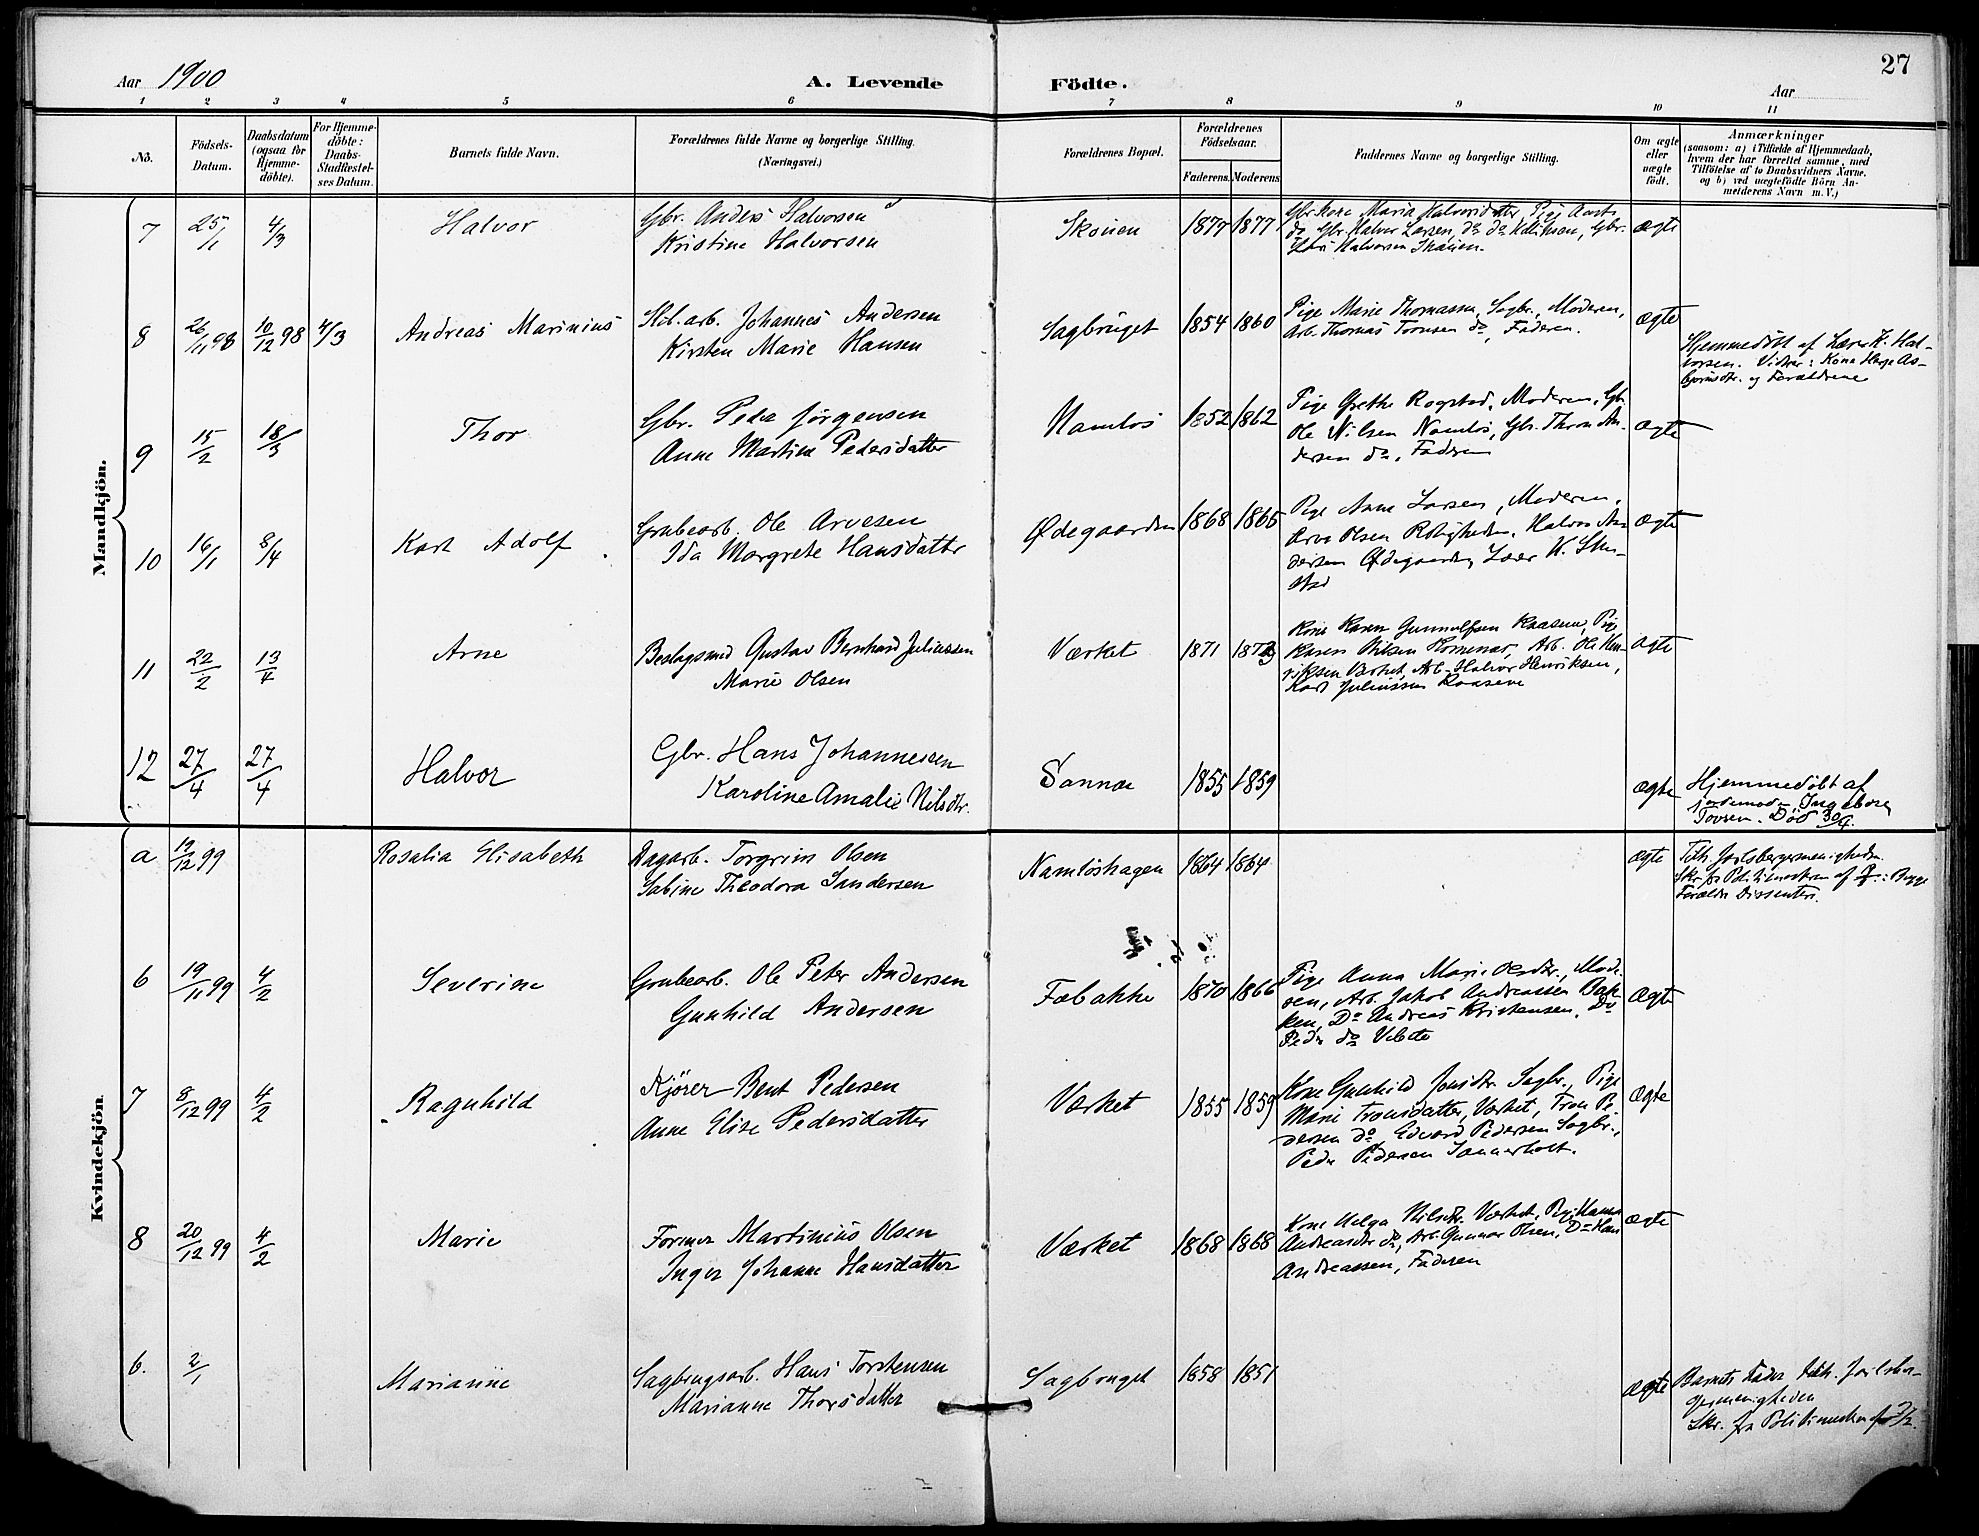 Aar 1900
A. Levende
Födte.
Aar
27
1 2 3 4 5 6 7 8 9 10 11
No.
Födsels-
Datum.
Daabsdatum
(ogsaa for
Hjemme-
döbte).
For Hjemme-
döbte:
Daabs-
Stadfæstel-
ses Datum.
Barnets fulde Navn.
Forældrenes fulde Navne og borgerlige Stilling.
(Næringsvei.)
Forældrenes Bopæl.
Forældrenes
Födselsaar.
Faderens. Moderens.
Faddernes Navne og borgerlige Stilling.
Om ægte
eller
uægte
födt.
Anmærkninger
(saasom: a) i Tilfælde af Hjemmedaab,
hvem der har forrettet samme, med
Tilföielse af to Daabsvidners Navne,
og b) ved uægtefödte Börn An-
melderens Navn m. V.)
Mandkjön.
7 25/1 4/3 Halvor
Gbr. Anders Halvorsen
Kristine Halvorsen
Skouen 1877 1877
Gbrkone Maria Halvorsdatter, Pige
do Gbr. Halvor Larsen, do do Gbr.
Lars Halvorsen Skauen.
ægte
8 26/11 98 10/12 98 4/3 Andreas Marinius
arb. Johannes Andersen
Kirsten Marie Hansen
Sagbruget 1854 1860
Pige Marie Thomassen, Sagbr., Moderen,
Arb. Thomas Tronsen do, Faderen.
ægte
Hjemmedöbt af Lærer K. Hal-
vorsen. Vidner: Kone As-
björnsdtr. og Forældrene
9 15/2 18/3 Thor
Gbr. Peder Jørgensen
Anne Martine Pedersdatter
Namløs 1852 1862
Pige Grethe Rogstad, Moderen, Gbr.
Ole Nilsen Namløs, Gbr. Thron An-
dersen do, Faderen
ægte
10 16/1 8/4 Karl Adolf
Grubearb. Ole Arvesen
Ida Margrete Hansdatter
Ødegaarden 1868 1865
Pige Anna Larsen, Moderen,
Arve Olsen Roligheden, Halvor An-
dersen Ødegaarden, Lærer K.
ægte
11 22/2 13/4 Arne
Beslagsmed Gustav Bernhard Juliussen
Marie Olsen
Værket 1871 1873
Kone Karen Gunnulfsen Kaasene, Pige
Karen Nilsen Arb. Ole Hen-
riksen Værket, Arb. Halvor Henriksen,
Karl Juliussen Kaasene
ægte
12 27/4 27/4 Halvor
Gbr. Hans Johannessen
Karoline Amalie Nilsdtr.
Sannæs 1855 1859
ægte
Hjemmedöbt af
jordemoder Ingeborg
Tovsen. Död 30/4.
Kvindekjön.
a 19/12 99 Rosalia Elisabeth
Dagarb. Torgrim Olsen
Sabine Theodora Sandersen
Namløshagen 1864 1864
ægte
Tilh. Jarlsbergsmenigheden.
Skr. fra Politimesteren af Begge
Forældre Dissentere.
6 19/11 99 4/2 Severine
Grubearb. Ole Peter Andersen
Gunhild Andersen
Febakke 1870 1866
Pige Anna Marie Olsdtr., Mode-
ren, Arb. Jakob Andreassen Bak-
ken, Do Andreas Kristensen, Do
Peder do Vebete
ægte
7 8/12 99 4/2 Ragnhild
Kjører Bent Pedersen
Anne Elise Pedersdatter
Værket 1855 1859
Kone Gunhild Jonsdtr. Sagbr., Pige
Marie Tronsdatter, Værket, Tron Pe-
dersen do, Edvard Pedersen Sagbr.,
Peder Pedersen Sannerholt.
ægte
8 20/12 99 4/2 Marie
Former Martinius Olsen
Inger Johanne Hansdatter
Værket 1868 1868
Kone Helga Nilsdtr. Værket, Pige Hanna
Andreasdtr do, Arb. Gunnar Olsen, Do Hans
Andreassen, Faderen
ægte
6. 2/1 Marianne
Sagbrugsarb. Hans Torstensen
Marianne Thorsdatter
Sagbruget 1858 1851
ægte
Barnets Fader tilh. Jarlsber-
gsmenigheden
Skr. fra Politimesteren